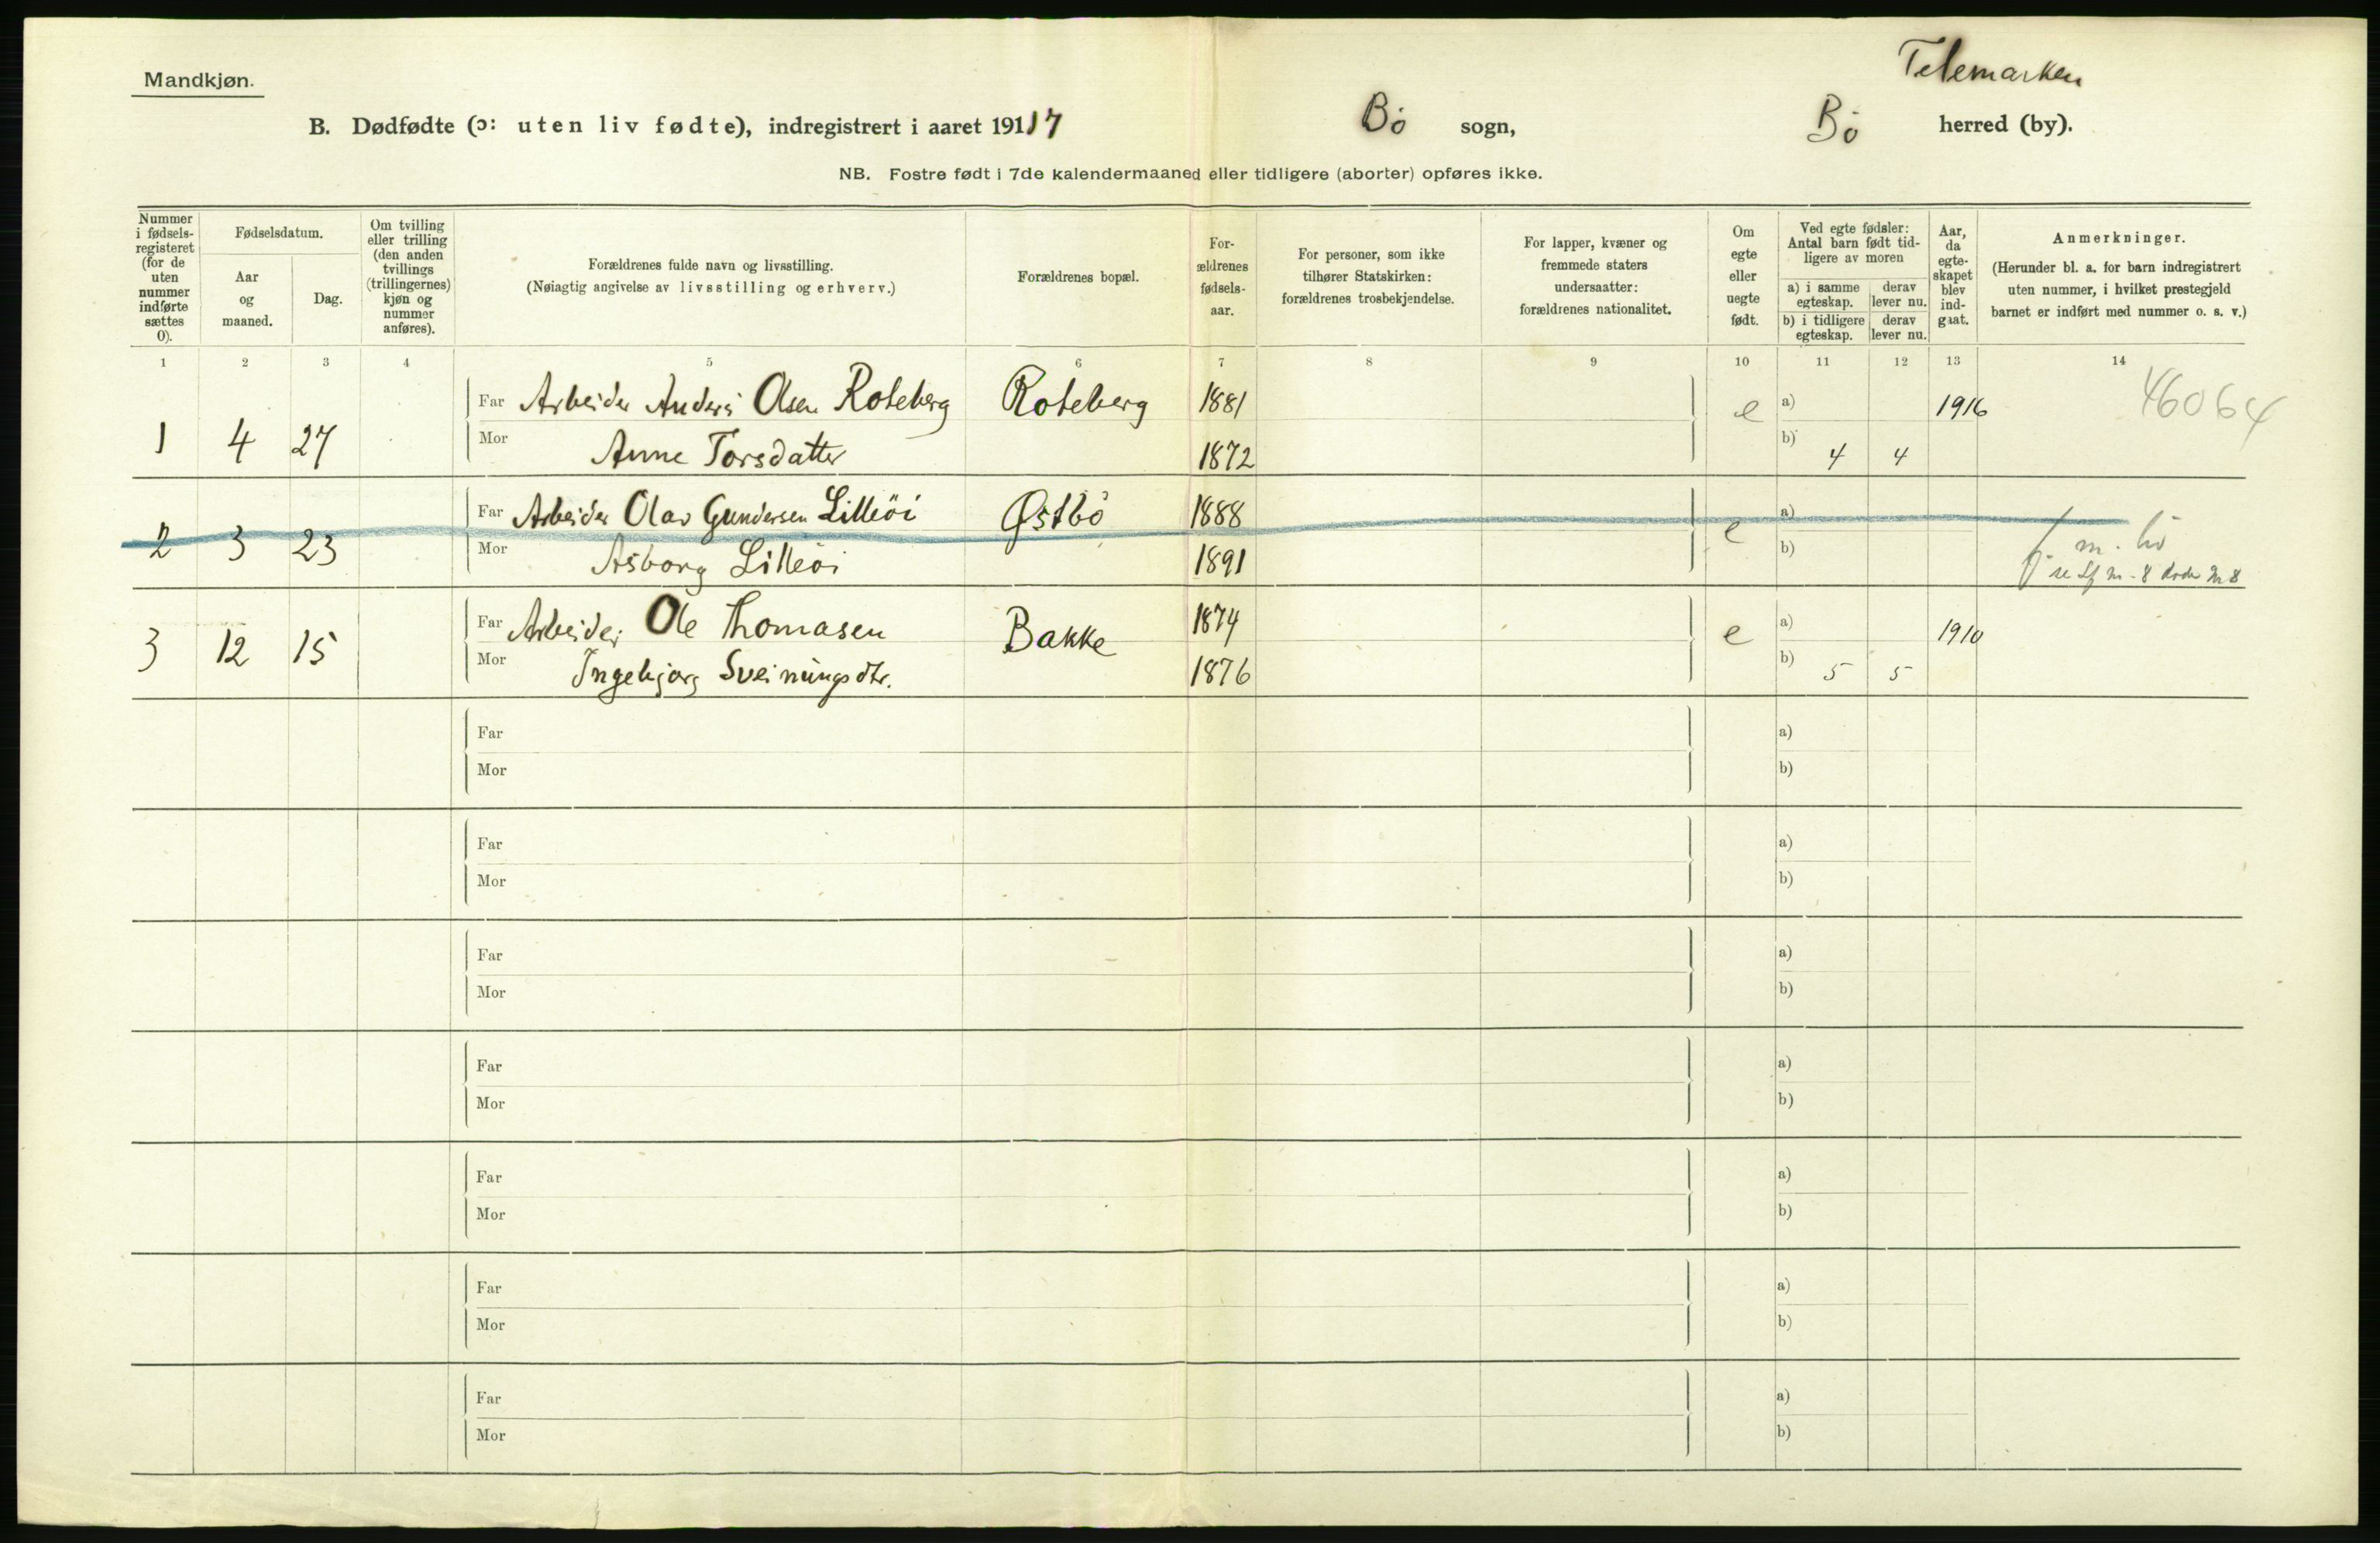 Mandkjøn.
Telemarken
B. Dødfødte (ɔ: uten liv fødte), indregistrert i aaret 191 17 Bö sogn, Bö herred (by).
NB. Fostre født i 7de kalendermaaned eller tidligere (aborter) opføres ikke.
Nummer i fødsels-registeret (for de uten nummer indførte sættes 0).
Fødselsdatum.
Aar og maaned.
Dag.
Om tvilling eller trilling (den anden tvillings (trillingernes) kjøn og nummer anføres).
Forældrenes fulde navn og livsstilling.
(Nøiagtig angivelse av livsstilling og erhverv.)
Forældrenes bopæl.
For-ældrenes fødsels-aar.
For personer, som ikke tilhører Statskirken: forældrenes trosbekjendelse.
For lapper, kvæner og fremmede staters undersaatter: forældrenes nationalitet.
Om egte eller uegte født.
Ved egte fødsler: Antal barn født tid-ligere av moren
a) i samme egteskap. derav lever nu.
b) i tidligere egteskap. derav lever nu.
Aar, da egte-skapet blev ind-gaat.
Anmerkninger.
(Herunder bl. a. for barn indregistrert uten nummer, i hvilket prestegjeld barnet er indført med nummer o. s. v.)
1 2 3 4 5 6 7 8 9 10 11 12 13 14
Far Arbeider Anders Olsen Roteberg Roteberg 1881 e a) 1916 46064
1 4 27 Mor Anne Torsdatter 1872 b) 4 4
Far Arbeider Olav Gundersen Lilleöi Østbö 1888 e a)
2 3 23 Mor Asborg Lilleöi 1891 b) f. m. liv
se Lf m. 8 Døde m 8
Far Arbeider Ole Thomasen Bakke 1874 e a) 1910
3 12 15 Mor Ingebjorg Sveinungsdtr. 1876 b) 5 5
Far a)
Mor b)
Far a)
Mor b)
Far a)
Mor b)
Far a)
Mor b)
Far a)
Mor b)
Far a)
Mor b)
Far a)
Mor b)